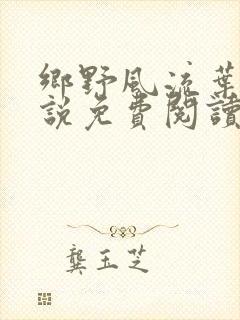 鄉野風流葉
說免費閱讀
龔玉芝